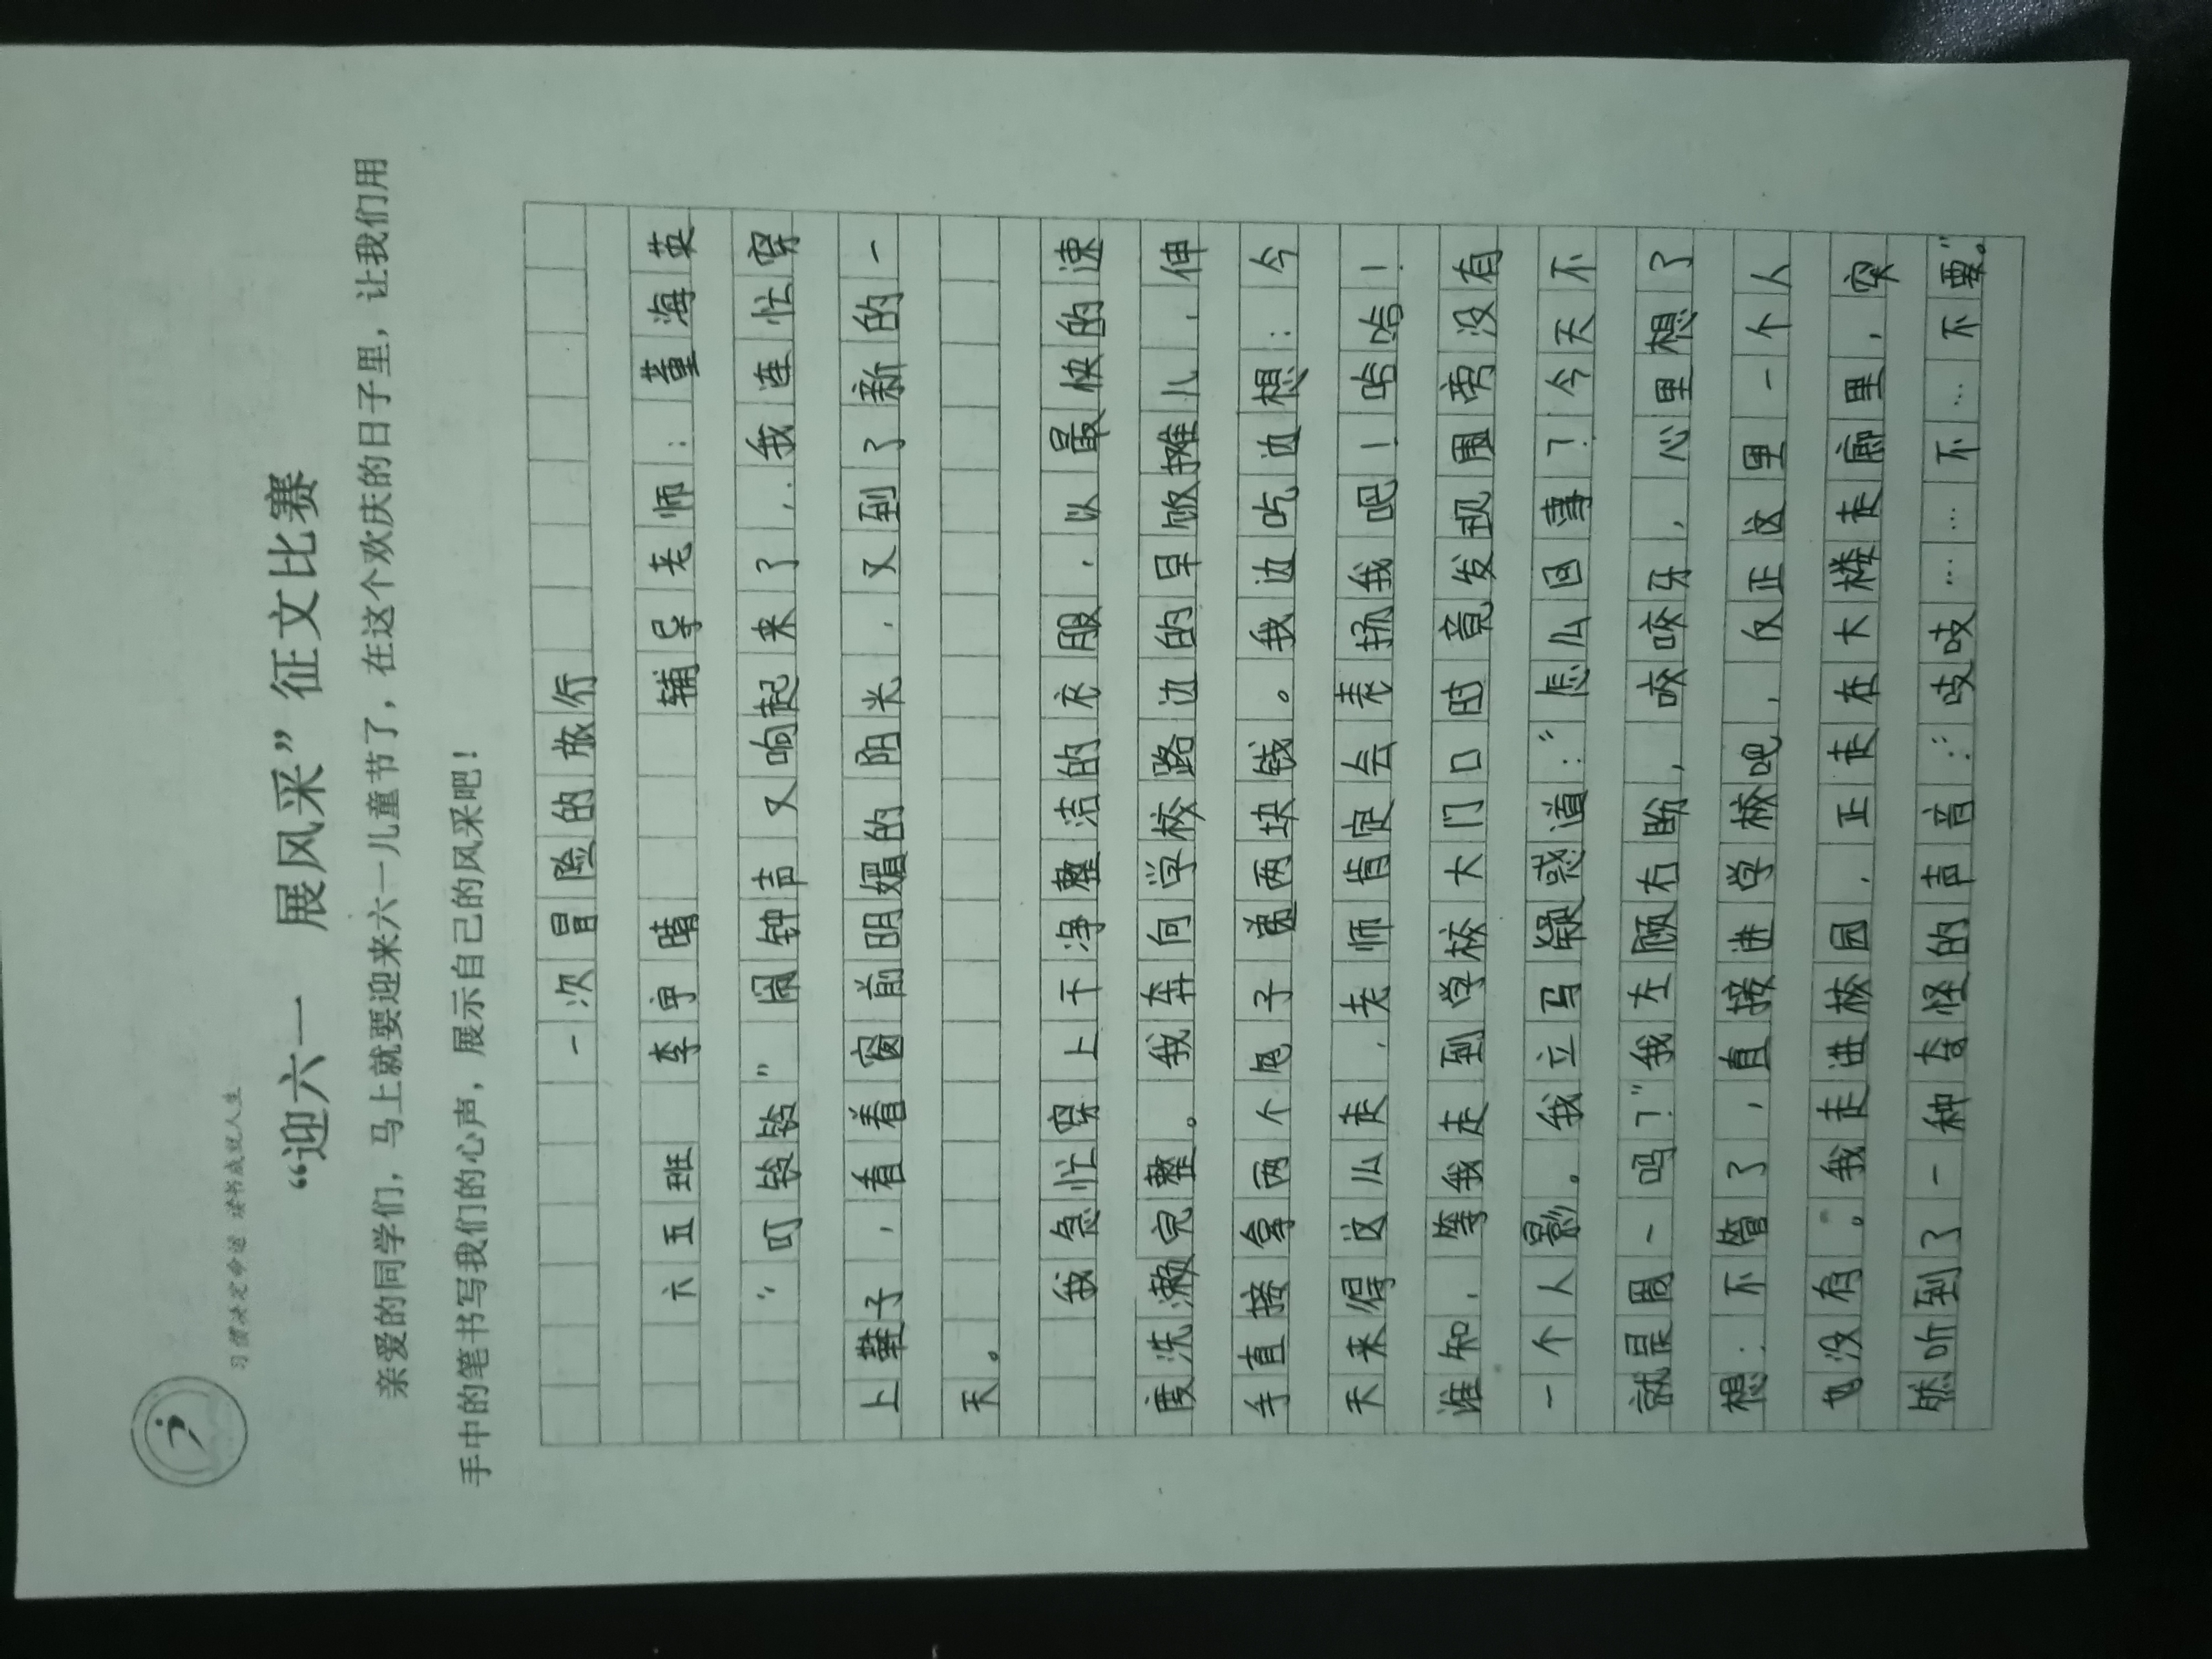 习惯决定命运 读书成就人生
“迎六一 展风采”征文比赛
亲爱的同学们，马上就要迎来六一儿童节了，在这个欢庆的日子里，让我们用
手中的笔书写我们的心声，展示自己的风采吧！
一次冒险的旅行
六五班 李宇晴 辅导老师：董海英
“叮铃铃”闹钟声又响起来了，我连忙穿
上鞋子，看着窗前明媚的阳光，又到了新的一
天。
我急忙穿上干净整洁的衣服，以最快的速
度洗漱完整。我奔向学校路边的早饭摊儿，伸
手直接拿两个包子 两块钱。我边吃边想：今
天来得这么走，老师肯定会表扬我吧！哈哈！
谁知，等我走到学校大门口时竟发现周旁没有
一个人影。我立马疑惑道：“怎么回事？今天不
就是周一吗？”我左顾右盼，咬咬牙，心里想了
想：不管了，直接进学校吧，反正这里一个人
也没有。我走进校园，正走在大楼走廊里，突
然听到了一种奇怪的声音：“吱吱……不……不要。”